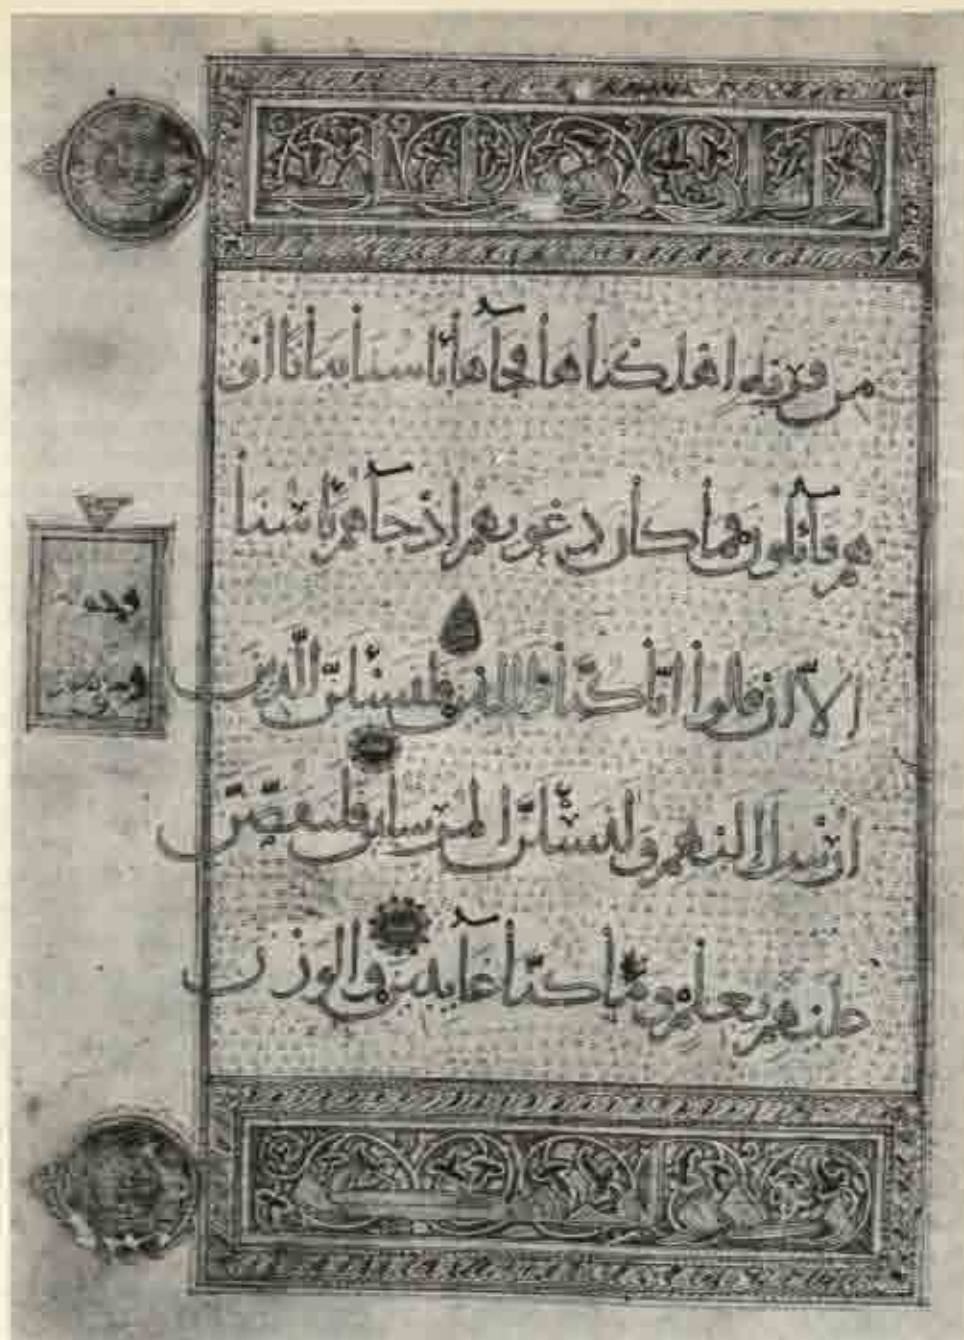 من قرية اهلكناها فجآها بأسنا بياتا او
هم قآئلون فما كان دعويهم اذ جآهم بأسنا
الّا ان قالوا انّا كنّا ظالمين فلنسئلنّ الّذين
ارسل اليهم ولنسئلنّ المرسلين فلنقصّنّ
عليهم بعلم وما كنّا غآيبين والوزن